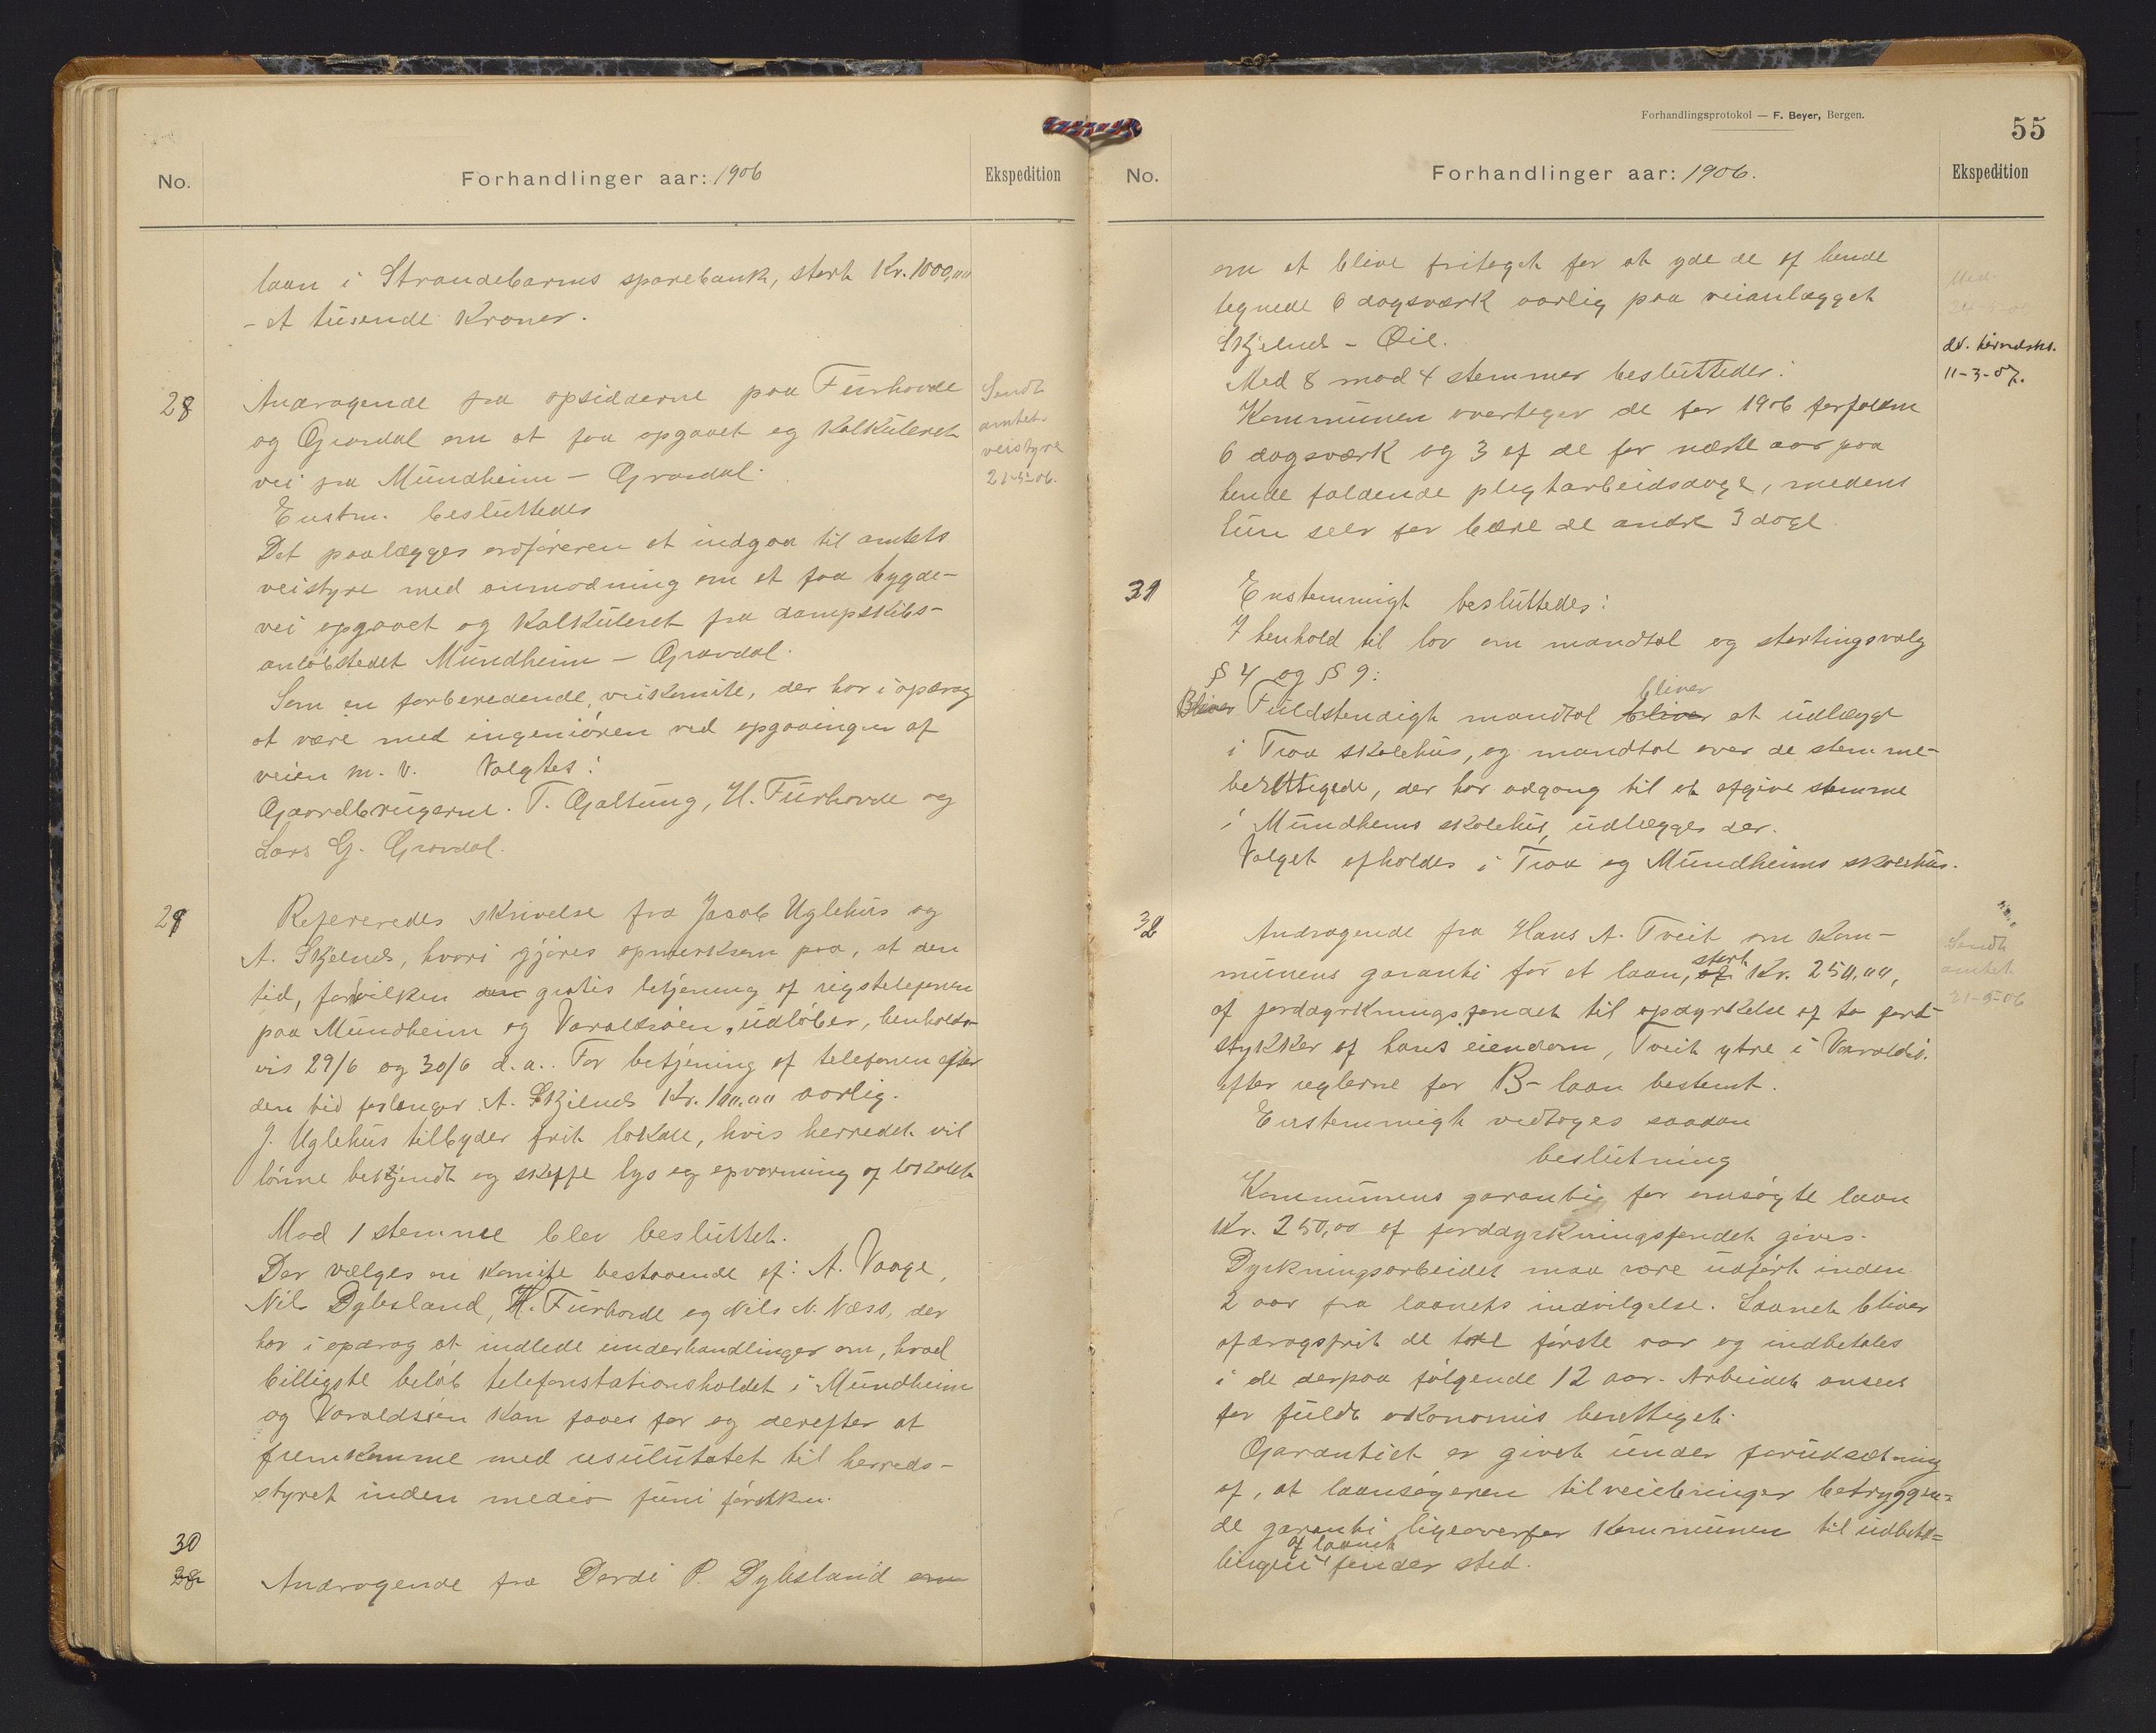 No.
Forhandlinger aar: 1906
Ekspedition
laan i Strandebarms sparebank, stort Kr. 1000,00
- et tusende Kroner.
28
Andragende fra opsidderne paa Furhovde
og Gravdal om at faa opgaaet og Kalkuleret
vei fra Mundheim - Gravdal.
Enstm. besluttedes
Det paalægges ordføreren at indgaa til amtets
veistyre med anmodning om at faa bygde-
vei opgaaet og Kalkuleret fra dampskibs-
anløbstedet Mundheim - Gravdal.
Som en forberedende veikomite, der har i opdrag
at være med ingeniøren ved opgaaingen af
veien m. v. Valgtes:
Gaardbrugerne. T. Galtung, H. Furhovde og
Lars G. Gravdal.
Sendt
amtets
veistyre
21-5-06.
29
Refereredes skrivelse fra Jacob Uglehus og
A. Skjelnes, hvori gjøres opmerksom paa, at den
tid, forhvilken den gratis betjening af rigstelefonen
paa Mundheim og Varaldsøen, udløber, henholds-
vis 29/6 og 30/6 d. a.. For betjening af telefonen efter
den tid forlanger A. Skjelnes Kr. 100.00 aarlig.
J. Uglehus tilbyder frit lokale, hvis herredet vil
lønne betjendt og skaffe lys og opvarming af lokalet
Mod 1 stemme blev besluttet.
Der vælges en Komite bestaaende af: A. Vaage,
Nils Dybsland, H. Furhovde og Nils N. Næss, der
har i opdrag at indlede underhandlinger om, hvad
billigste beløb telefonstationsholdet i Mundheim
og Varaldsøen Kan faaes for og derefter at
fremkomme med resulutatet til herreds-
styret inden medio juni førstkm.
30
28
Andragende fra Dordi P. Dybsland om
Forhandlingsprotokol — F. Beyer, Bergen.
55
No.
Forhandlinger aar: 1906.
Ekspedition
om at blive fritaget for at yde de af hende
tegnede 6 dagsværk aarlig paa veianlægget
Skjelnes - Øie.
Med 8 mod 4 stemmer besluttedes:
Kommunen overtager de for 1906 forfaldne
6 dagsværk og 3 af de for næste aar paa
hende faldende pligtarbeidsdage, medens
hun selv for bære de andre 3 dage
11-3-07.
31
Enstemmigt besluttedes:
I henhold til lov om mandtal og stortingsvalg
§ 4 og § 9:
Bliver Fuldstendigt mandtal bliver bliver at udlægge
i Traa skolehus, og mandtal over de stemme-
berettigede, der har adgang til at afgive stemme
i Mundheims skolehus, udlægges der.
Valget afholdes i Traa og Mundheims skolehus.
32
Andragende fra Hans A. Tveit om Kom-
munens garanti for et laan, af stort Kr. 250.00,
af jorddyrkningsfondet til opdyrkelse af to jord-
stykker af hans eiendom, Tveit ytre i Varaldsø.
efter reglerne for B-laan bestemt.
Enstemmigt vedtoges saadan
beslutning
Kommunens garanti for ansøgte laan
Kr. 250,00 af jorddyrkningsfondet gives.
Dyrkningsarbeidet maa være udført inden
2 aar fra laanets indvilgelse. Laanet bliver
afdragsfrit de to første aar og indbetales
i de derpaa følgende 12 aar. Arbeidet ansees
for fuldt økonomis berettiget.
Garantiet er givet under forudsætning
af, at laansøgeren tilveiebringer betryggen-
de garanti ligeoverfor Kommunen til udbeta-
lingen af laanet finder sted.
Sendt
amtet
21-5-06